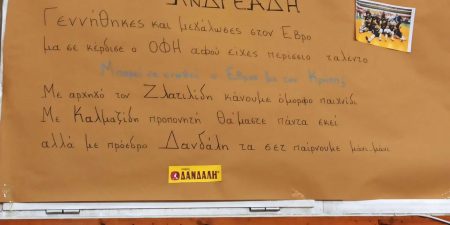 ΑΝΔΡΕΑΔΗ
Γεννήθηκες και μεγάλωσες στον Εβρο
μα σε κέρδισε ο ΟΦΗ αφού είχες περίσσιο ταλέντο
Μπορεί να ενωθεί ο Εβρος με την Κρήτη
Με αρχηγό τον Ζλατιλίδη κάνουμε όμορφο παιχνίδι
Με Καλμαζίδη προπονητή θάμαστε πάντα εκεί
αλλά με πρόεδρο Δανδάλη τα σετ παίρνουμε μάνι μάνι
ΔΑΝΔΑΛΗ